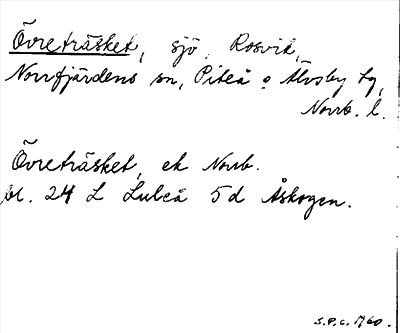 Övreträsket, sjö, Rosvik,
Norrfjärdens sn, Piteå o Älvsby tg,
Norrb. l.
Övreträsket, ek Norrb.
bl. 24 L Luleå 5 d Åskogen.
S.P.C. 1960.